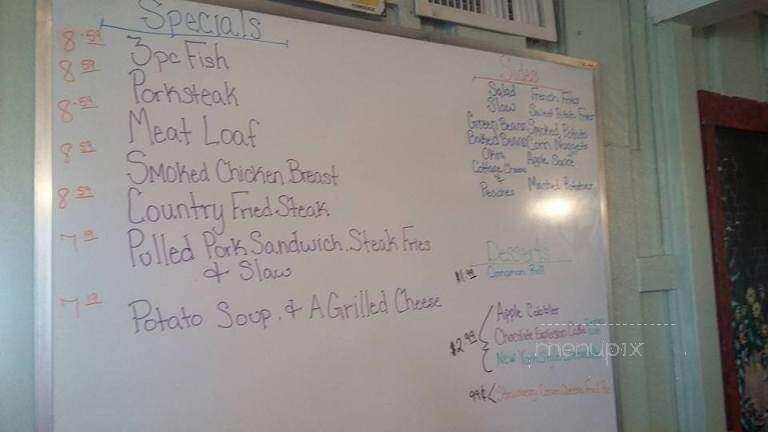 Specials
8.59 3pc Fish
8.59 Porksteak
8.59 Meat Loaf
8.59 Smoked Chicken Breast
8.59 Country Fried Steak
7.19 Pulled Pork Sandwich, Steak Fries
& Slaw
7.19 Potato Soup & A Grilled Cheese
Sides
Salad French Fries
Slaw Sweet Potato Fries
Green Beans Smoked Potato
Baked Beans Corn Nuggets
Okra Apple Sauce
Cottage Cheese
&
Peaches Mashed Potatoes
Desserts
$1.99 Cinnamon Roll
Apple Cobbler
$2.99 Chocolate Explosion Cake
New York
99¢ Strawberry Cream Cheese Fried Pie
menupix